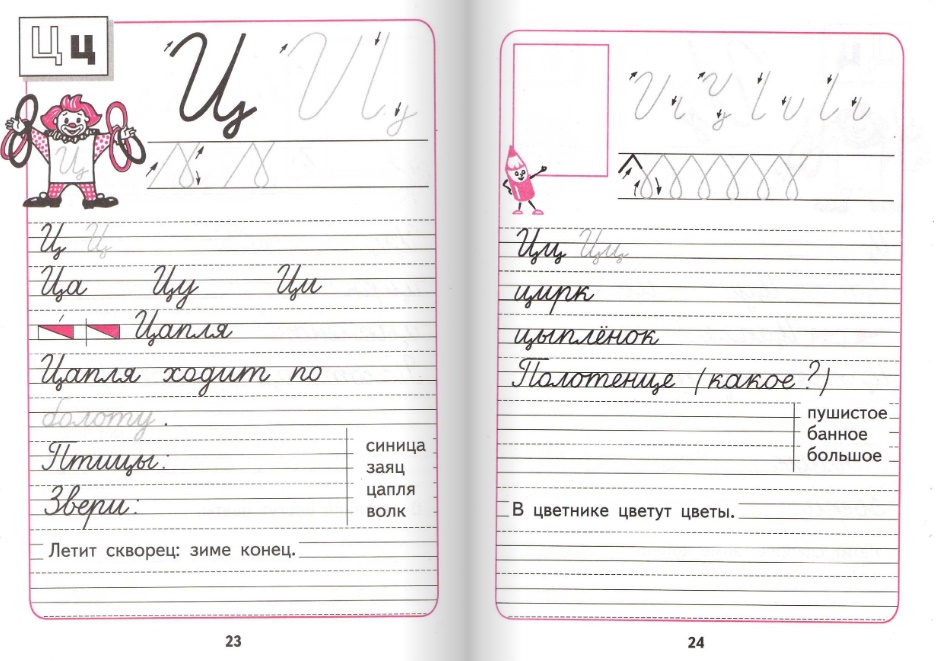 Ц ц
Ц Ц
Ц
Ц Ц
Ца Цу Ци
Цапля
Цапля ходит по
болоту.
Птицы:
Звери:
синица
заяц
цапля
волк
Летит скворец: зиме конец.
23
Цц Цц
цирк
цыплёнок
Полотенце (какое?)
пушистое
банное
большое
В цветнике цветут цветы.
24